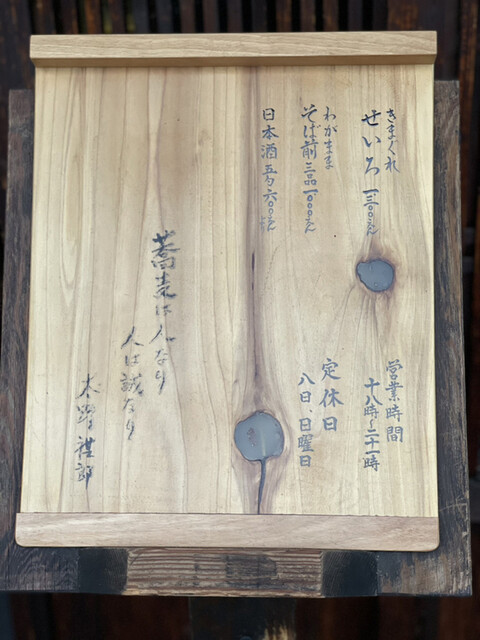 きまぐれ
せいろ 一、三〇〇えん
わがまま
そば前 三品 一、〇〇〇えん
日本酒 五勺 六〇〇えん
営業時間
十八時〜二十一時
定休日
八日、日曜日
蕎麦は人なり
人は誠なり